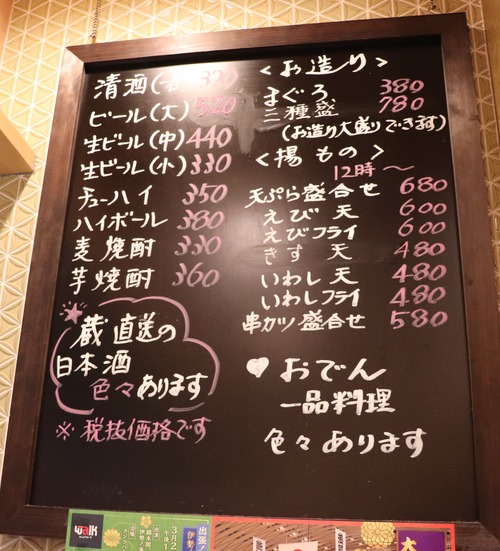 清酒(一合)320
ビール(大)520
生ビール(中)440
生ビール(小)330
チューハイ 350
ハイボール 380
麦焼酎 330
芋焼酎 360
蔵直送の
日本酒
色々あります
※税抜価格です
<お造り>
まぐろ 380
三種盛 780
(お造り大盛りできます)
<揚もの>
12時〜
天ぷら盛合せ 680
えび天 600
えびフライ 600
きす天 480
いわし天 480
いわしフライ 480
串カツ盛合せ 580
♥おでん
一品料理
色々あります
walk
出張!
伊勢
3月2